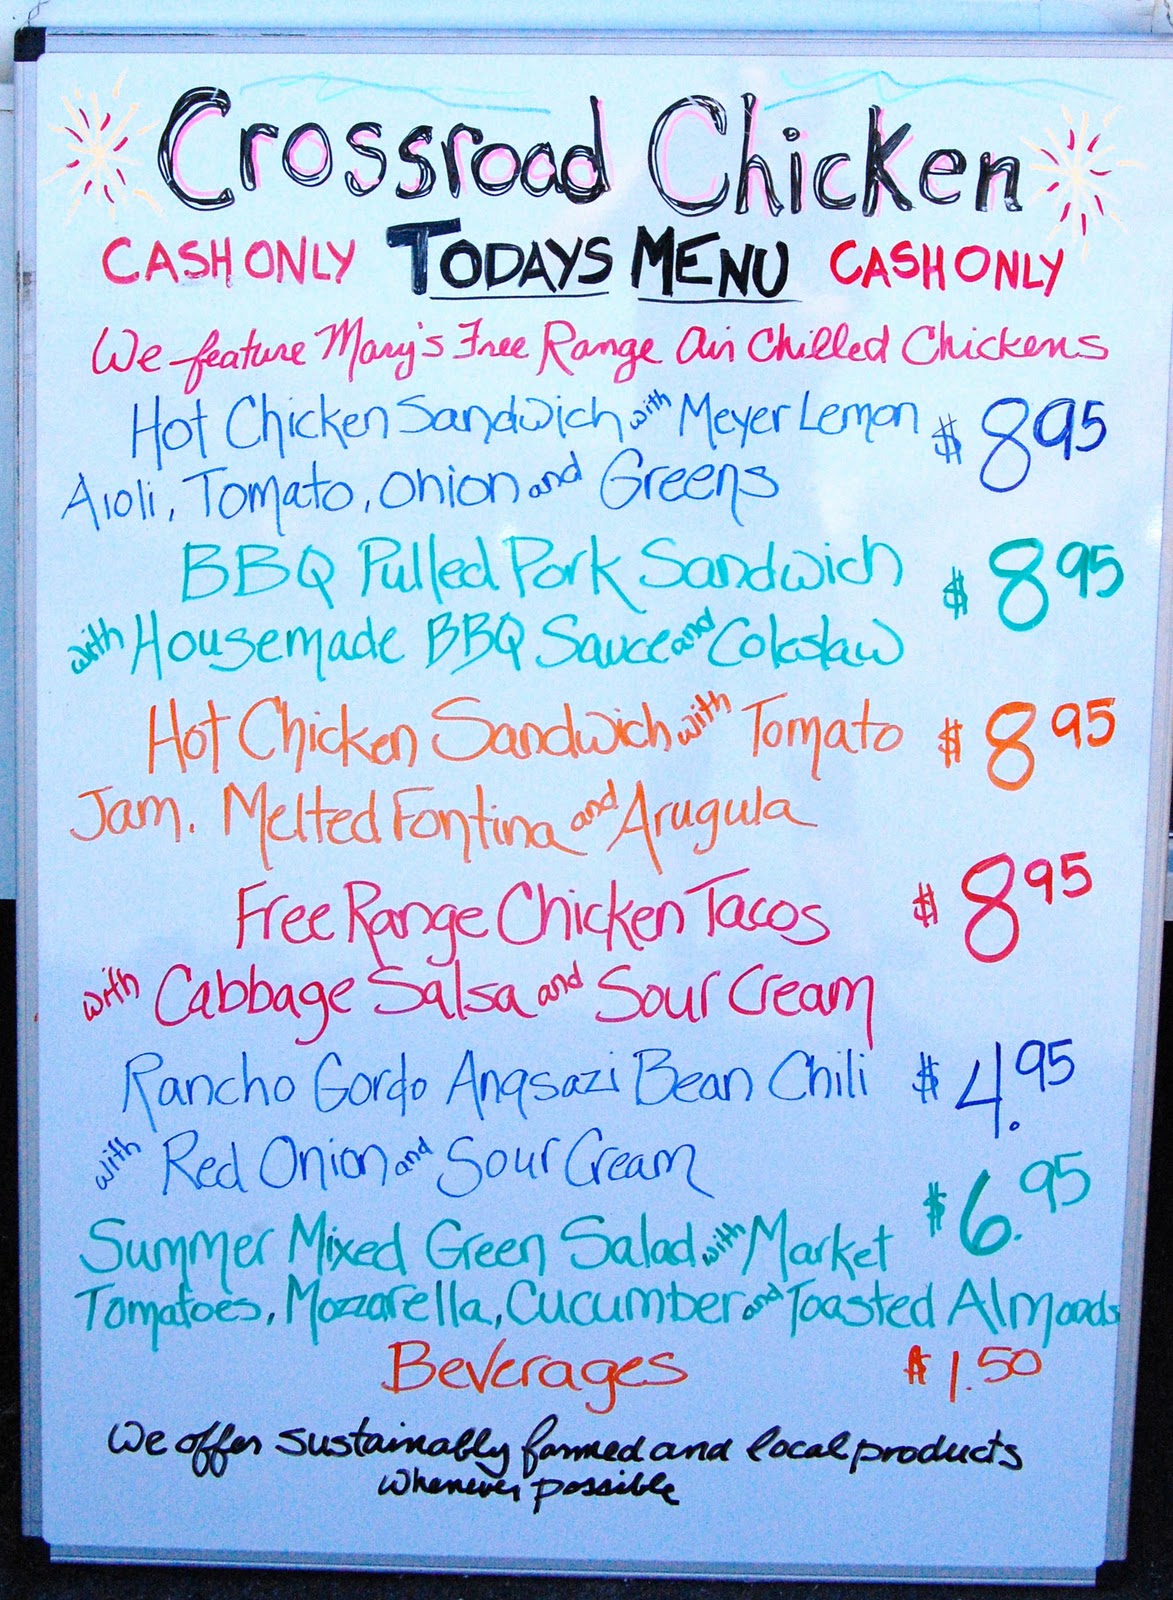 Crossroad Chicken
CASH ONLY TODAYS MENU CASH ONLY
We feature Mary's Free Range Air Chilled Chickens
Hot Chicken Sandwich with Meyer Lemon $8 95
Aioli, Tomato, Onion and Greens
BBQ Pulled Pork Sandwich $8 95
with Housemade BBQ Sauce and Coleslaw
Hot Chicken Sandwich with Tomato $8 95
Jam. Melted Fontina and Arugula
Free Range Chicken Tacos $8 95
with Cabbage Salsa and Sour Cream
Rancho Gordo Anasazi Bean Chili $4.95
with Red Onion and Sour Cream
Summer Mixed Green Salad with Market $6.95
Tomatoes, Mozzarella, Cucumber and Toasted Almonds
Beverages $1.50
We offer sustainably farmed and local products
whenever possible